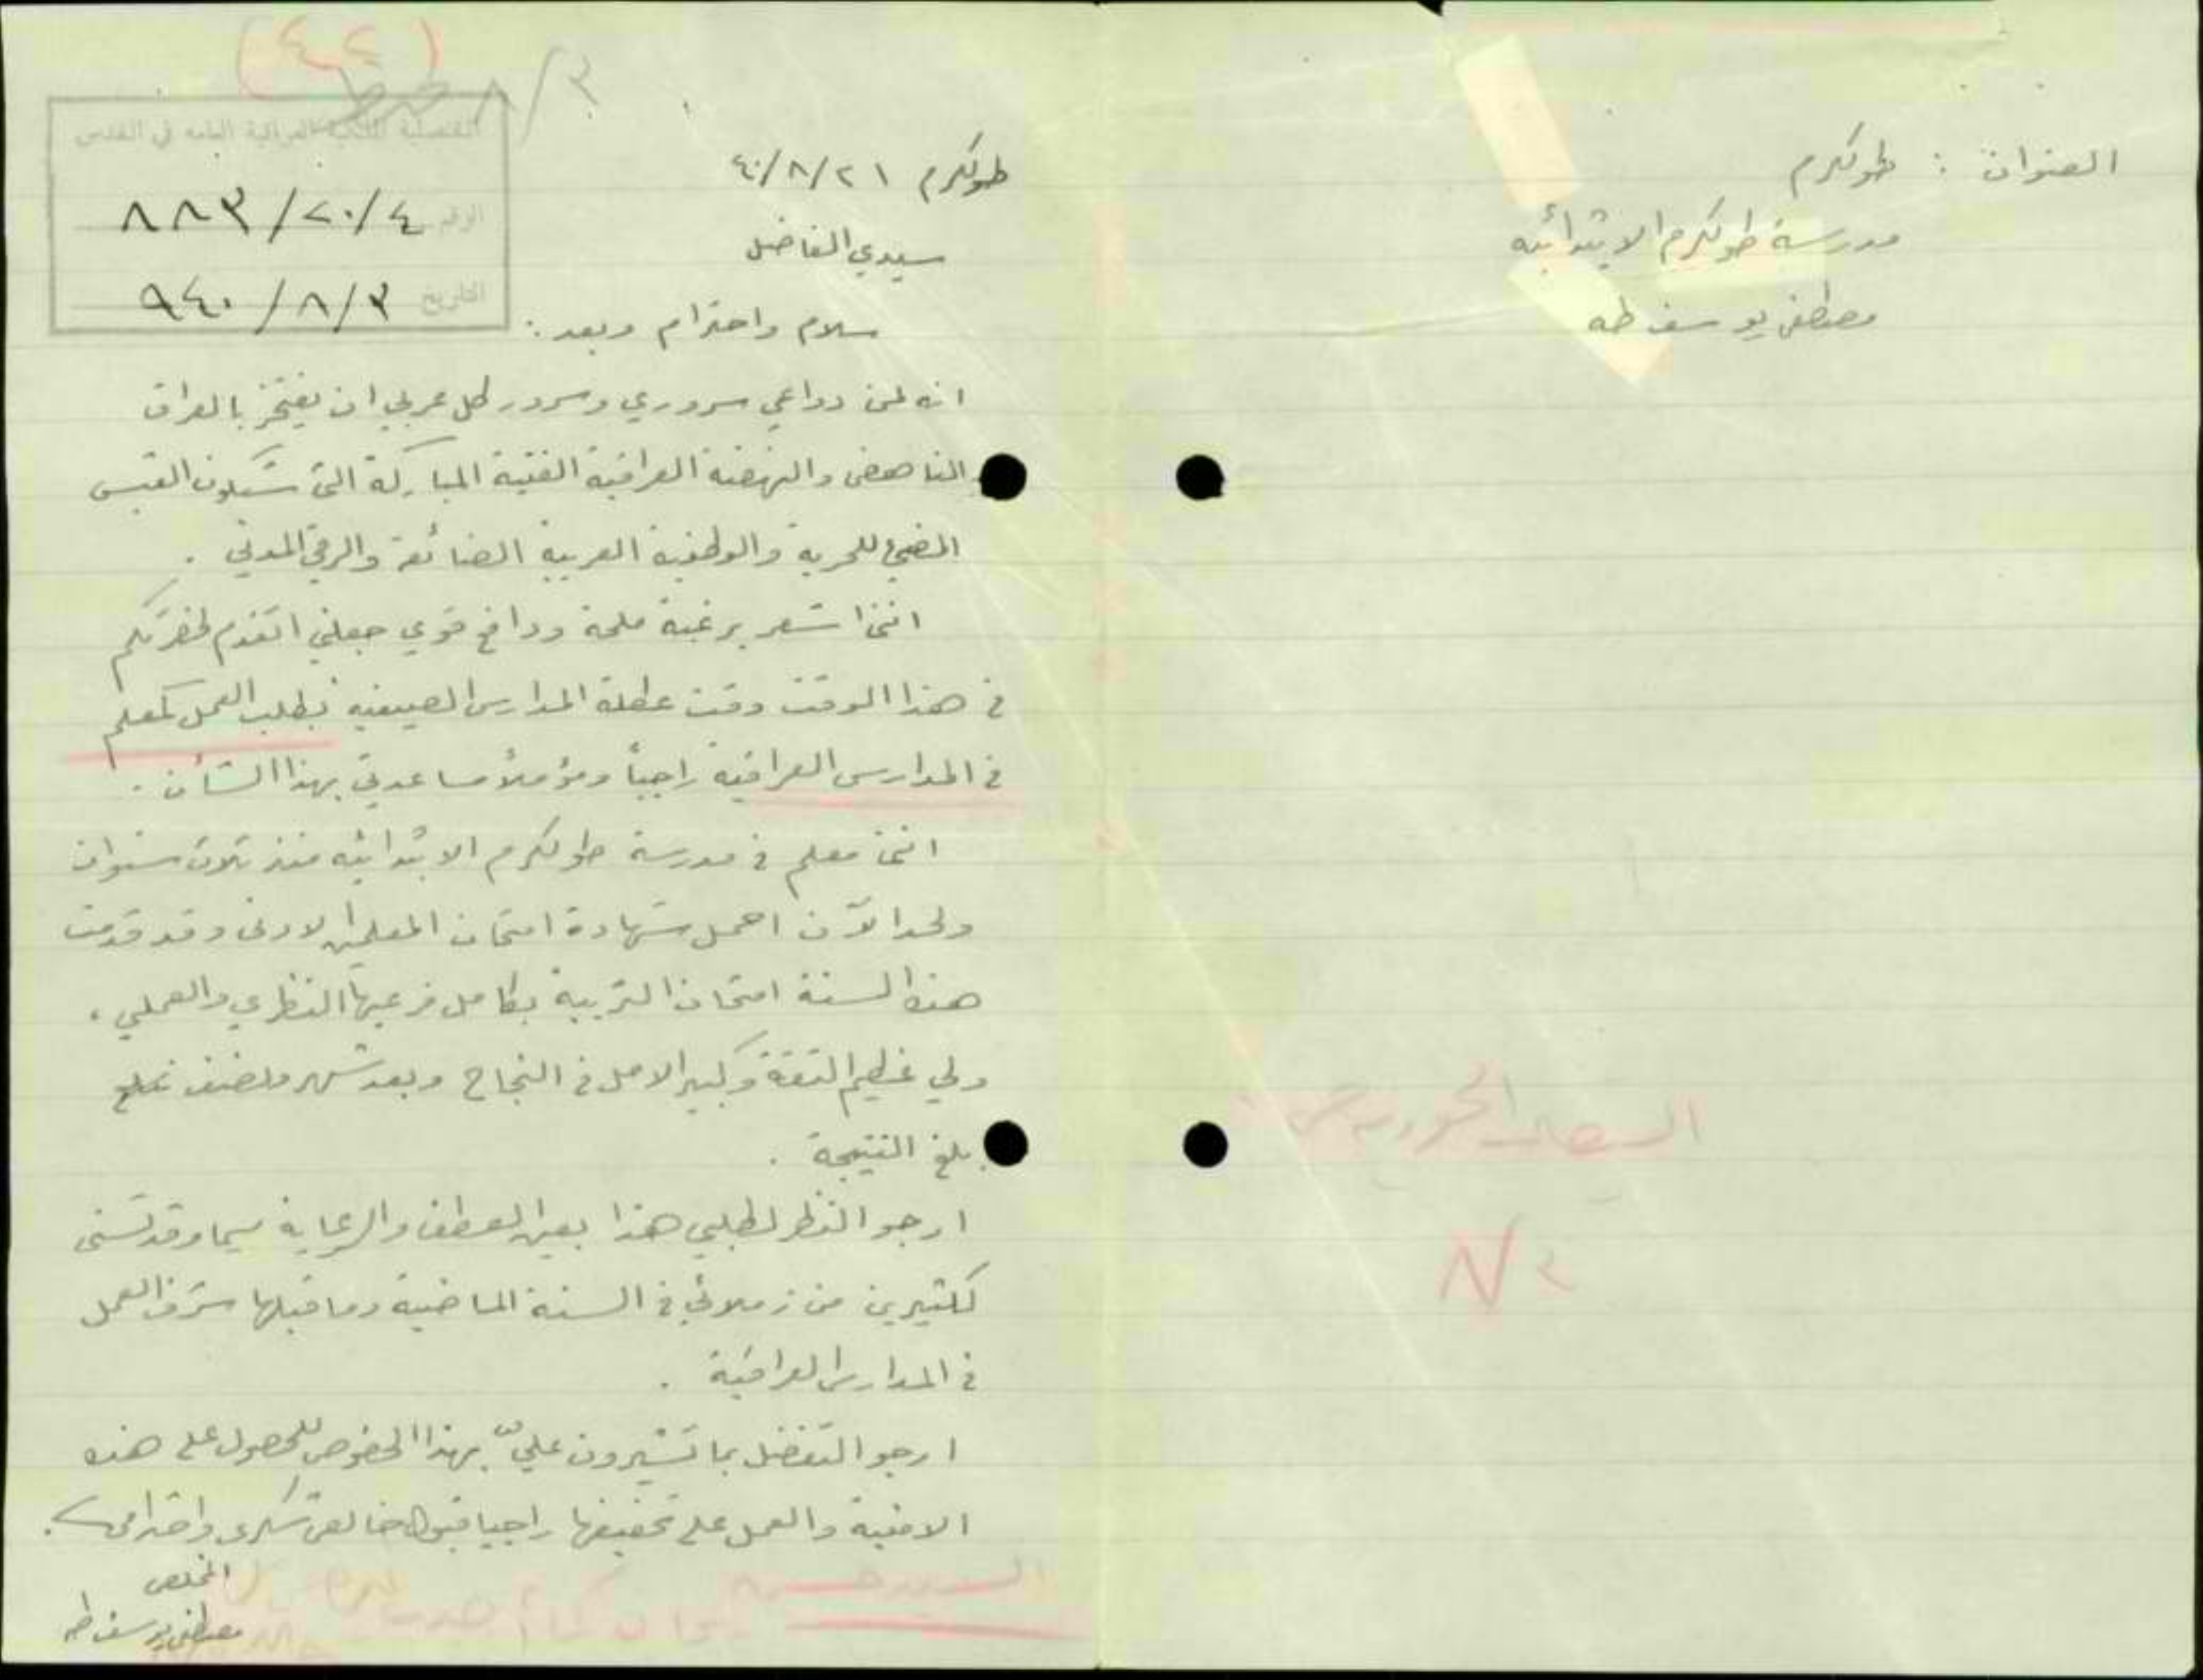 (٤٤)
٨/٣
القنصلية الملكية العراقية العامة في القدس
الرقم ٨٨٣/٢٠/٤
التاريخ ٩٤٠/٨/٣
طولكرم ٤٠/٨/٢١
سيدي الفاضل
سلام واحترام وبعد :
انه لمن دواعي سروري وسرور كل عربي ان يفتخر بالعراق
الناهض والنهضة العراقية الفتية المباركة التي ستكون القبس
المضيء للحرية والوطنية العربية الضائعة والرقي المدني .
انني اشعر برغبة ملحة ودافع قوي جعلني اتقدم لحضرتكم
في هذا الوقت وقت عطلة المدارس الصيفيه بطلب العمل كمعلم
في المدارس العراقيه راجياً ومؤملاً مساعدتي بهذا الشأن .
انني معلم في مدرسة طولكرم الابتدائيه منذ ثلاث سنوات
ولحد الآن احمل شهادة امتحان المعلمين الادنى وقد قدمت
هذه السنة امتحان التربية بكامل فرعيها النظري والعملي ،
ولي عظيم الثقة وكبير الامل في النجاح وبعد شهر ونصف
نبلغ النتيجة .
ارجو النظر لطلبي هذا بعين العطف والرعاية سيما وقد تسنى
لكثيرين من زملائي في السنة الماضية وما قبلها شرف العمل
في المدارس العراقية .
ارجو التفضل بما تشيرون عليّ بهذا الخصوص للحصول على هذه
الامنية والعمل على تحقيقها راجيا قبول خالص شكري واحترامي .
المخلص
مصطفى يوسف طه
العنوان : طولكرم
مدرسة طولكرم الابتدائيه
مصطفى يوسف طه